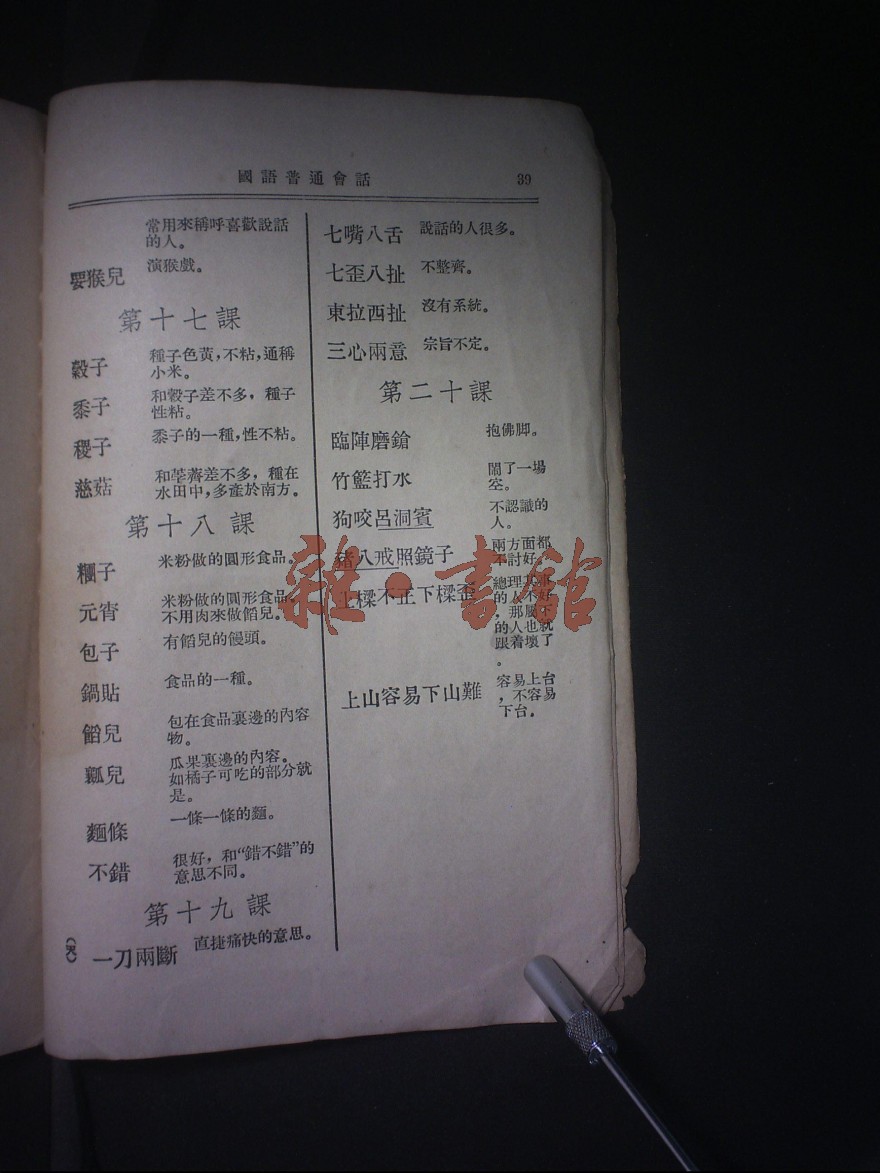 國語普通會話 39
常用來稱呼喜歡說話
的人。
耍猴兒 演猴戲。
第十七課
穀子 種子色黃,不粘,通稱
小米。
黍子 和穀子差不多,種子
性粘。
稷子 黍子的一種,性不粘。
慈菇 和荸薺差不多,種在
水田中,多產於南方。
第十八課
糰子 米粉做的圓形食品。
元宵 米粉做的圓形食品。
不用肉來做餡兒。
包子 有餡兒的饅頭。
鍋貼 食品的一種。
餡兒 包在食品裏邊的內容
物。
瓤兒 瓜果裏邊的內容。
如橘子可吃的部分就
是。
麵條 一條一條的麵。
不錯 很好,和“錯不錯”的
意思不同。
第十九課
一刀兩斷 直捷痛快的意思。
七嘴八舌 說話的人很多。
七歪八扯 不整齊。
東拉西扯 沒有系統。
三心兩意 宗旨不定。
第二十課
臨陣磨鎗 抱佛脚。
竹籃打水 鬧了一場
空。
狗咬呂洞賓 不認識的
人。
豬八戒照鏡子 兩方面都
不討好。
上樑不正下樑歪 總理其事
的人不好
,那屬下
的人也就
跟着壞了
。
上山容易下山難 容易上台
,不容易
下台。
雜·書館